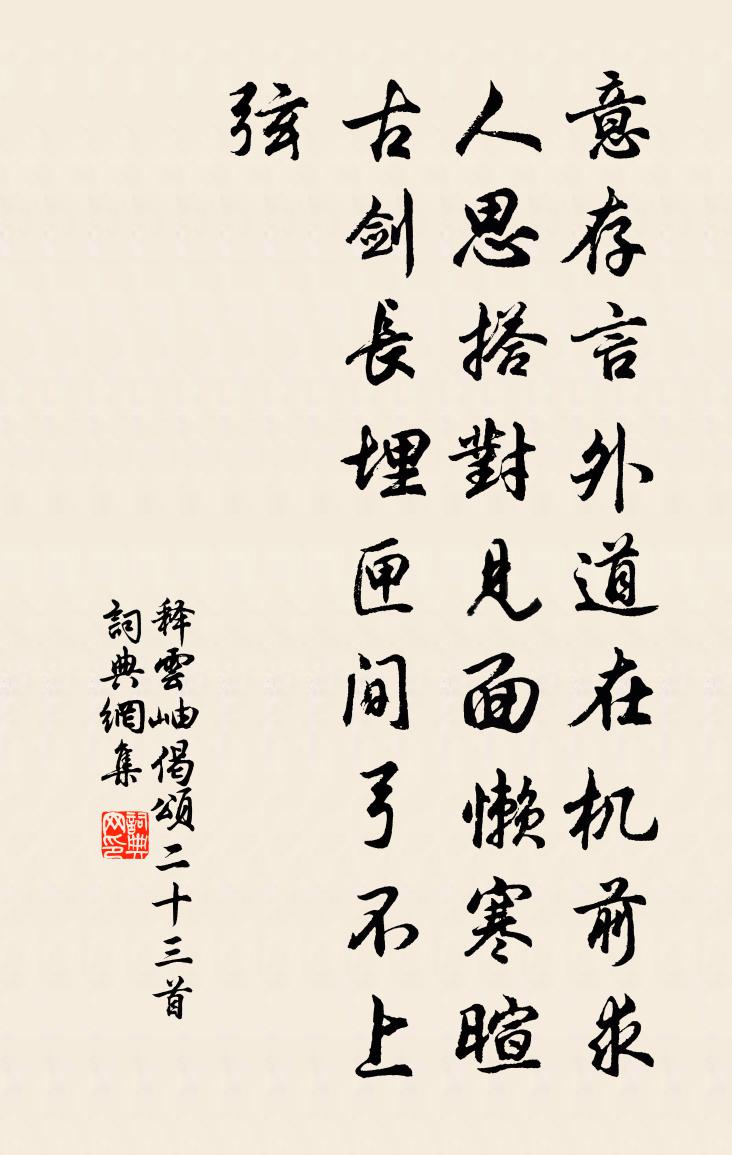 意存言外道在机前求
人思搭對見面懶寒暄
古剑長埋匣间弓不上
弦
释雲岫偈頌二十三首
詞典網集
詞典网印